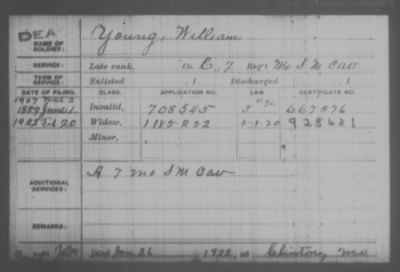 DEA
NAME OF SOLDIER: Young, William
SERVICE: Late rank, Co. C, 7 Reg't Mo S M Cav
TERM OF SERVICE: Enlisted , 1 Discharged , 1
DATE OF FILING. CLASS. APPLICATION NO. LAW CERTIFICATE NO.
1889 June 1 Invalid, 708545 667876
1922 Feb 20 Widow, 1185222 928631
Minor,
ADDITIONAL SERVICES: A 7 Mo S M Cav
REMARKS:
Died Jan 26, 1922, at Clinton, Mo